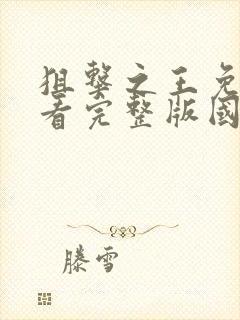 狙擊之王免
看完整版國
滕雪